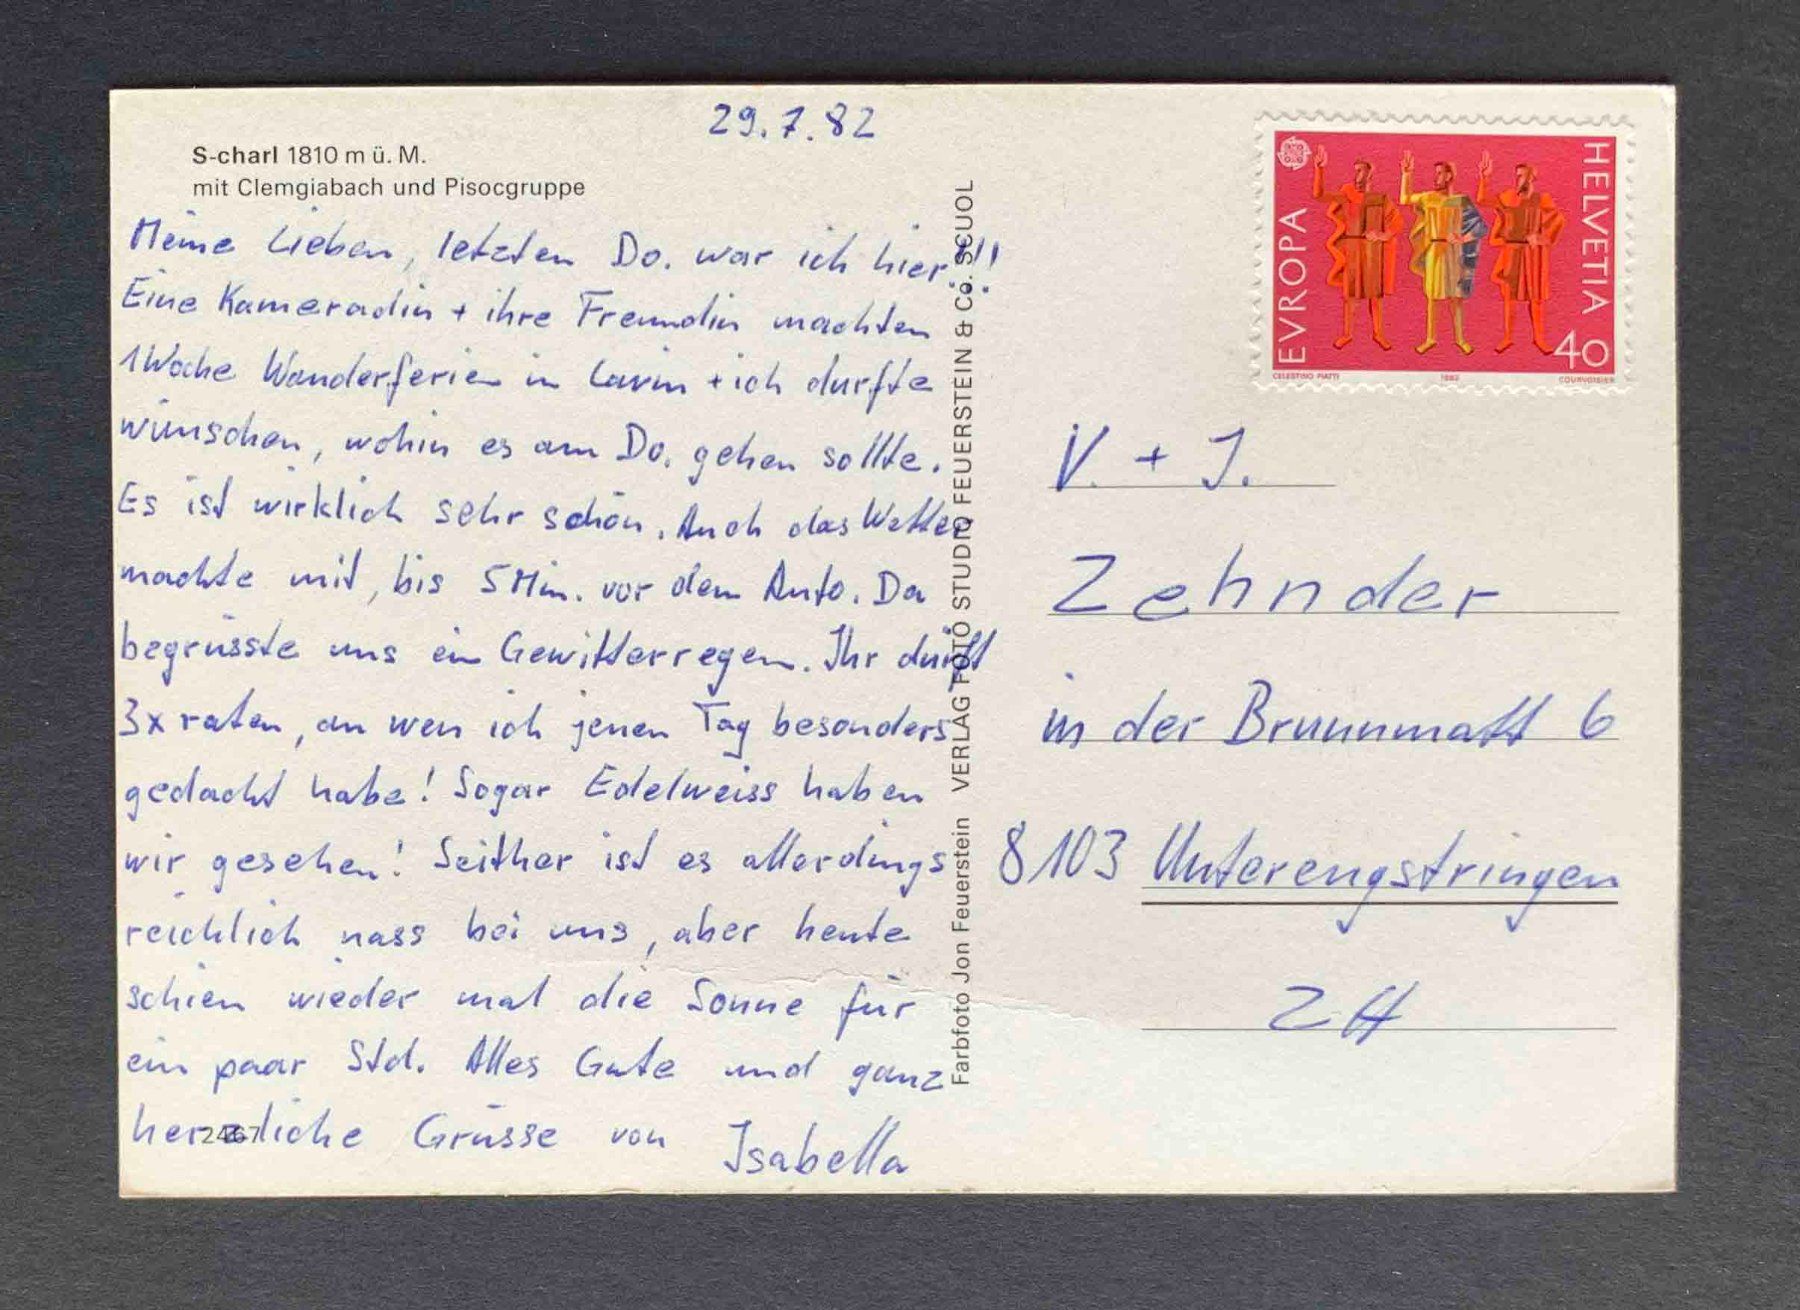 29.7.82
S-charl 1810 m ü. M.
mit Clemgiabach und Pisocgruppe
Meine Lieben, letzten Do. war ich hier!!!
Eine Kameradin + ihre Freundin machten
1 Woche Wanderferien in Lavin + ich durfte
wünschen, wohin es am Do. gehen sollte.
Es ist wirklich sehr schön. Auch das Wetter
machte mit, bis 5 Min. vor dem Auto. Da
begrüsste uns ein Gewitterregen. Ihr dürft
3x raten, an wen ich jenen Tag besonders
gedacht habe! Sogar Edelweiss haben
wir gesehen! Seither ist es allerdings
reichlich nass bei uns, aber heute
schien wieder mal die Sonne für
ein paar Std. Alles Gute und ganz
herzliche Grüsse von Isabella
2467
Farbfoto Jon Feuerstein VERLAG FOTO STUDIO FEUERSTEIN & Co. SCUOL
EVROPA
HELVETIA
40
CELESTINO PIATTI 1982 COURVOISIER
V. + J.
Zehnder
in der Brunnmatt 6
8103 Unterengstringen
ZH